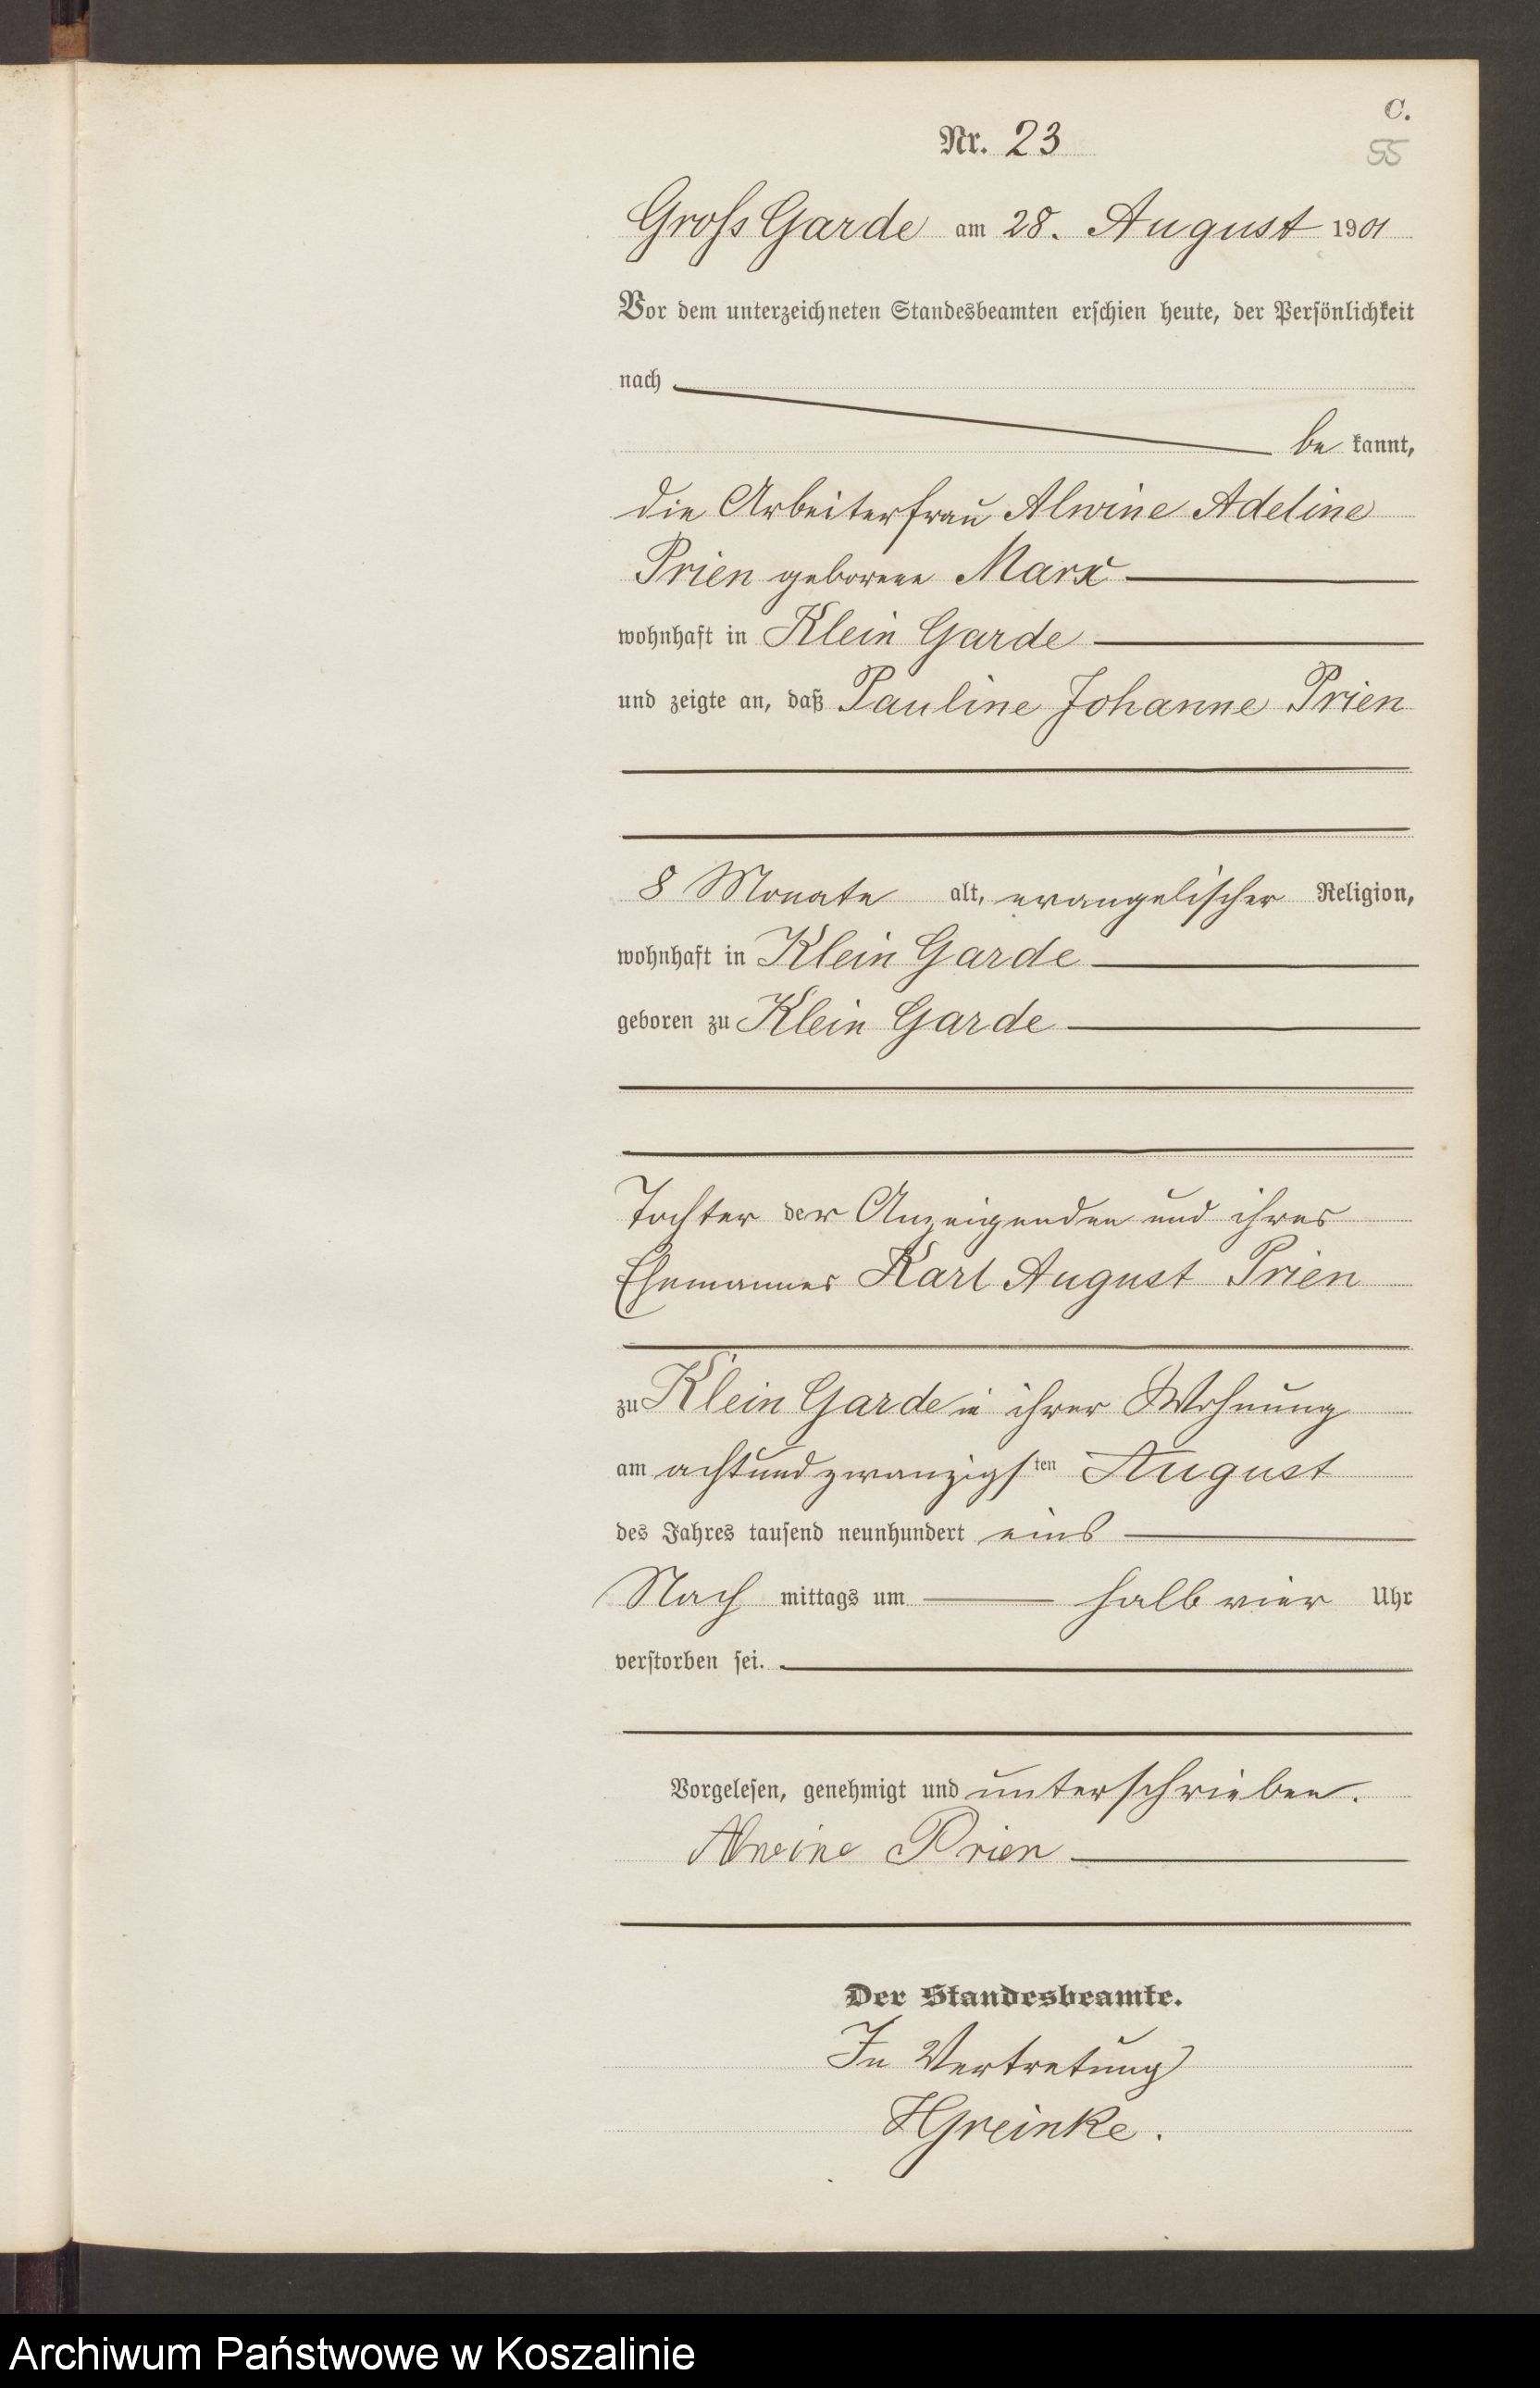 C.
Nr. 23
55
Gross Garde am 28. August 1901
Vor dem unterzeichneten Standesbeamten erschien heute, der Persönlichkeit
nach
be kannt,
die Arbeiterfrau Alwine Adeline
Prien geborene Marx
wohnhaft in Klein Garde
und zeigte an, daß Pauline Johanne Prien
8 Monate alt, evangelischer Religion,
wohnhaft in Klein Garde
geboren zu Klein Garde
Tochter der Anzeigenden und ihres
Ehemannes Karl August Prien
zu Klein Garde in ihrer Wohnung
am achtundzwanzigsten August
des Jahres tausend neunhundert eins
Nach mittags um halb vier Uhr
verstorben sei.
Vorgelesen, genehmigt und unterschrieben.
Alwine Prien
Der Standesbeamte.
In Vertretung
HGreinke.
Archiwum Państwowe w Koszalinie